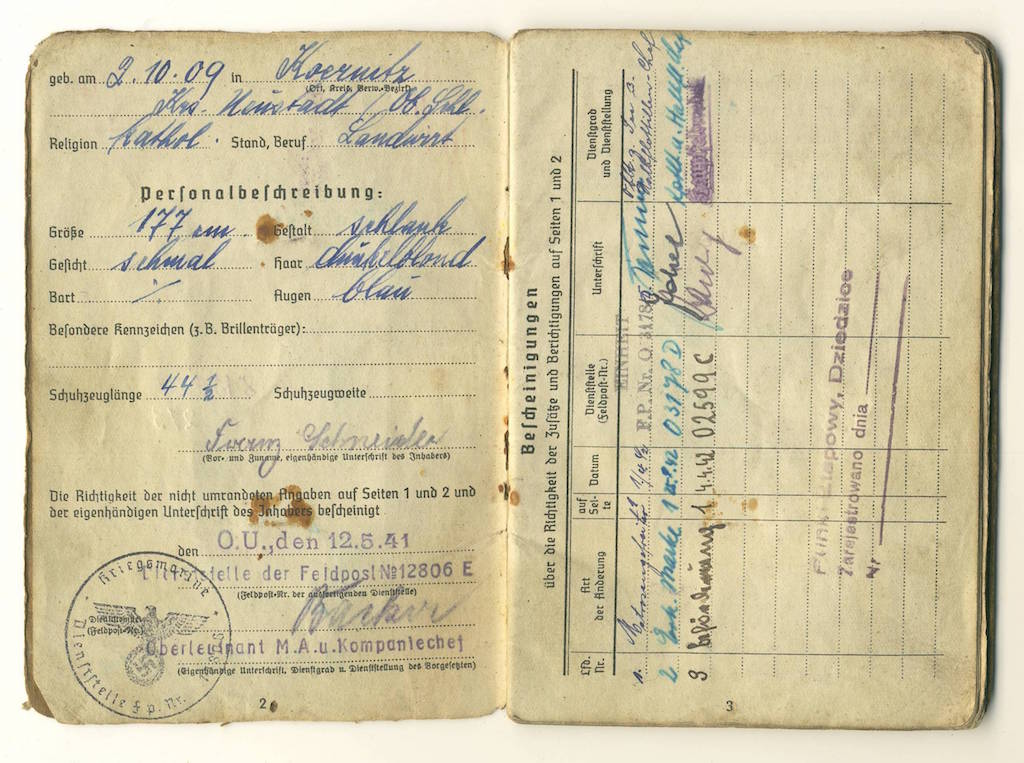 geb. am 2.10.09 in Koernitz
(Ort, Kreis, Verw.-Bezirk)
Krs. Neustadt / Ob. Schl.
Religion kathol. Stand, Beruf Landwirt
Personalbeschreibung:
Größe 177 cm Gestalt schlank
Gesicht schmal Haar dunkelblond
Bart / Augen blau
Besondere Kennzeichen (z.B. Brillenträger):
Schuhzeuglänge 44 ½ Schuhzeugweite
Franz Schneider
(Vor- und Zuname, eigenhändige Unterschrift des Inhabers)
Die Richtigkeit der nicht umrandeten Angaben auf Seiten 1 und 2 und
der eigenhändigen Unterschrift des Inhabers bescheinigt
den O.U., den 12.5.41
Dienststelle der Feldpost № 12806 E
(Feldpost-Nr. der ausfertigenden Dienststelle)
Dienststempel
(Feldpost-Nr.)
Oberleutnant M.A.u.Kompaniechef
(Eigenhändige Unterschrift, Dienstgrad u. Dienststellung des Vorgesetzten)
Kriegsmarine
Dienststelle F.p. Nr.
2
Bescheinigungen
über die Richtigkeit der Zusätze und Berichtigungen auf Seiten 1 und 2
Lfd. Nr.
Art der Änderung
auf Seite
Datum
Dienststelle (Feldpost-Nr.)
Unterschrift
Dienstgrad und Dienststellung
EINHEIT
1. 1 F.P.Nr. O 31783
2. Erk. Marke 1 03178 D
3 Beförderung 1 1.4.42 02599 C
Punkt Etapowy, Dziedzice
Zarejestrowano dnia
Nr
3